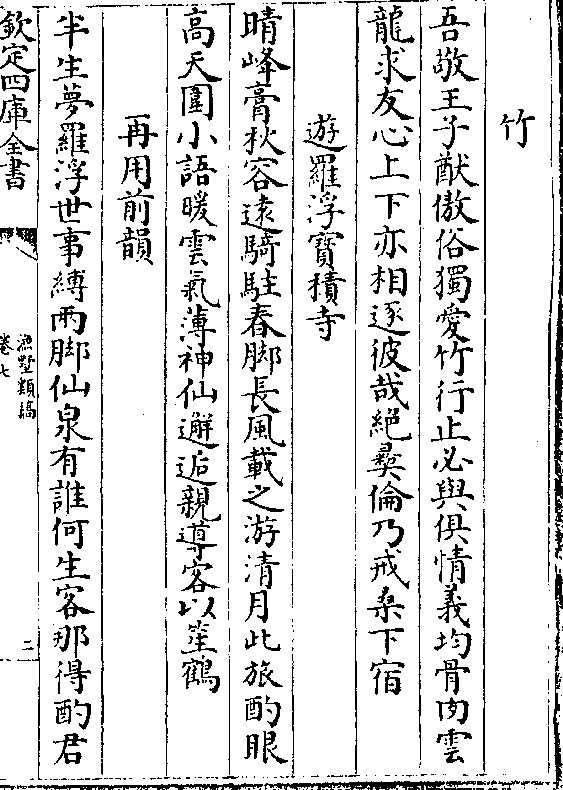 竹
吾敬王子猷傲俗獨愛竹行止必與俱情義均骨肉雲
龍求友心上下亦相逐彼哉絕彛倫乃戒桑下宿
遊羅浮寶積寺
晴峰膏秋容遠騎駐春脚長風載之游清月此旅酌眼
高天圍小語暖雲氣薄神仙邂逅親導客以笙鶴
再用前韻
半生夢羅浮世事縛兩脚仙泉有誰何生客那得酌君
欽定四庫全書
漁墅類稿
卷七
二